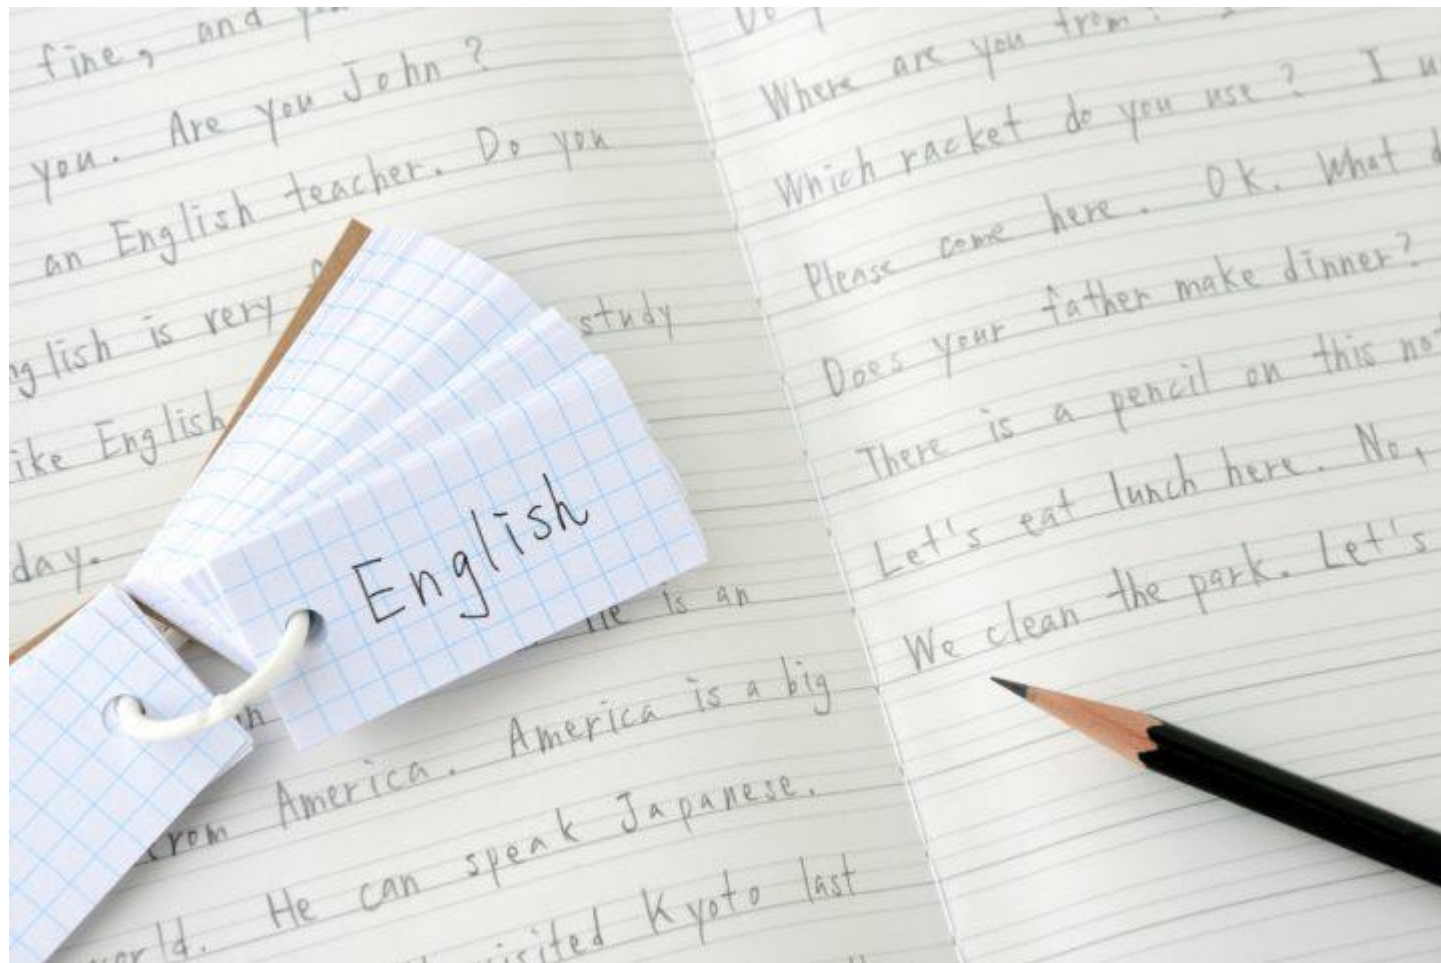 fine, and
you. Are you John?
an English teacher. Do you
is very
study
English
day.
English
is an
America. America is a big
He can speak Japanese.
visited Kyoto last
Where are you from?
Which racket do you use? I
Please come here. Ok. What
Does your father make dinner?
There is a pencil on this
Let's eat lunch here. No,
We clean the park. Let's